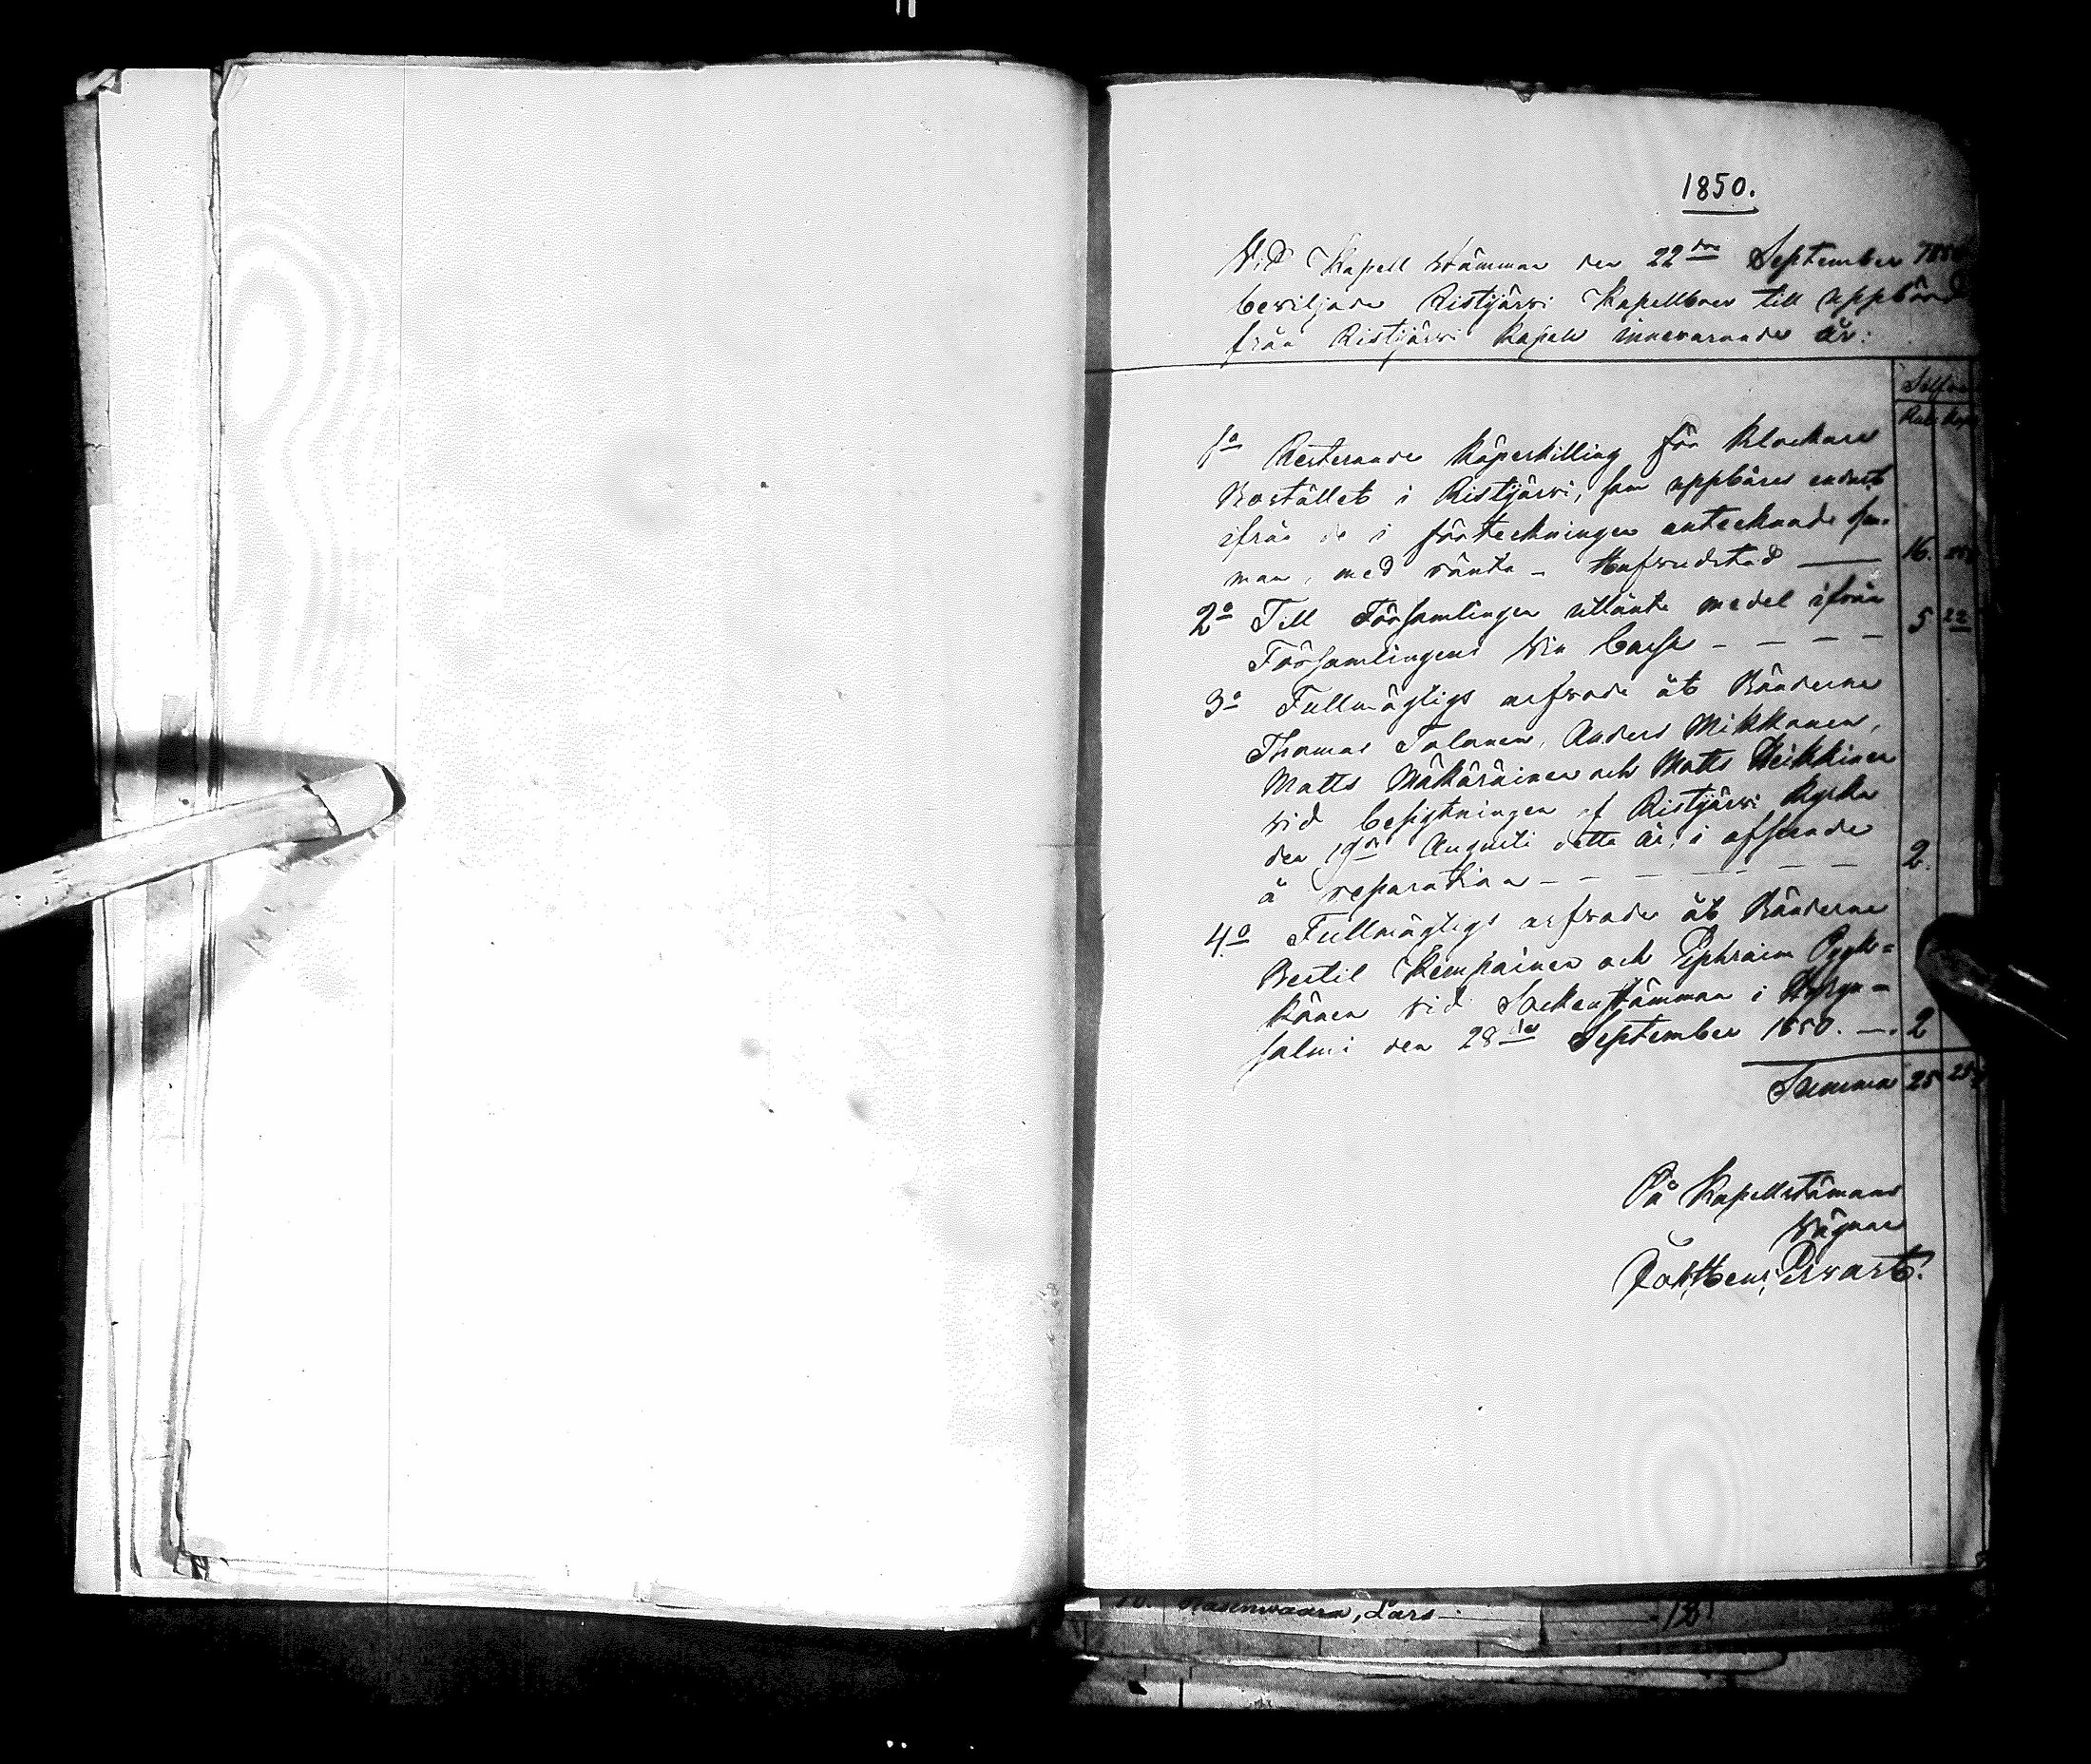 1850.
Vid Kapell stämman den 22dra September 1850
bewiljade Ristijärwi Kapellboer till uppbörd
från Ristijärwi Kapell innewarande år:
Silfwer
Rub. Kop.
1o Resterande köpeskilling för Klockare
Bostället i Ristijärwi, som uppbäres endast
ifrån de i förteckningen antecknade hem-
man, med ränta - Hufwudstad — 16.
2o Till Församlingen utlänte medel ifrån
Församlingens Vin Cassa - - - - 5 22
3o Fullmägtigs arfwode åt Bönderne
Thomas Tolanen, Anders Mikkonen,
Matts Mäkäräinen och Matts Heikkinen
vid besigtningen af Ristijärwi Kyrka
den 19de Augusti detta år, i afseende
å reparation - - - - - - - 2.
4o Fullmägtigs arfwode åt Bönderne
Bertil Kemppainen och Ephraim Pyyk=
könen vid Sockenstämman i Hyryn-
salmi den 28de September 1850. —. 2
Summa 25 25
På Kapellstämans
Vägnar
Joh. Henr. Ervast.
Hasenwaara, Lars